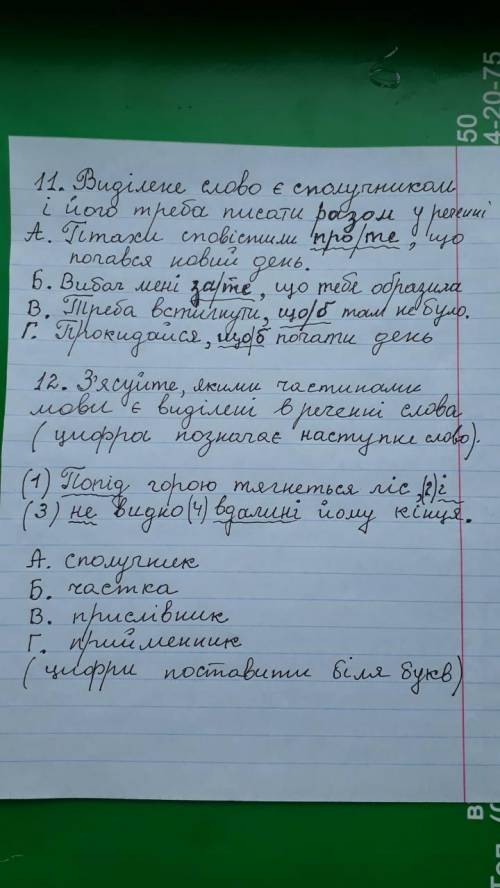 50
4-20-75
11. Виділене слово є сполучником
і його треба писати разом у реченні
А. Птахи сповістили про/те, що
почався новий день.
Б. Вибач мені за/те, що тебе образила
В. Треба встигнути, що/б там не було.
Г. Прокидайся, що/б почати день
12. З'ясуйте, якими частинами
мови є виділені в реченні слова
(цифра позначає наступне слово).
(1) Попід горою тягнеться ліс, (2) і
(3) не видно (4) вдалині йому кінця.
А. сполучник
Б. частка
В. прислівник
Г. прийменник
(цифри поставити біля букв)